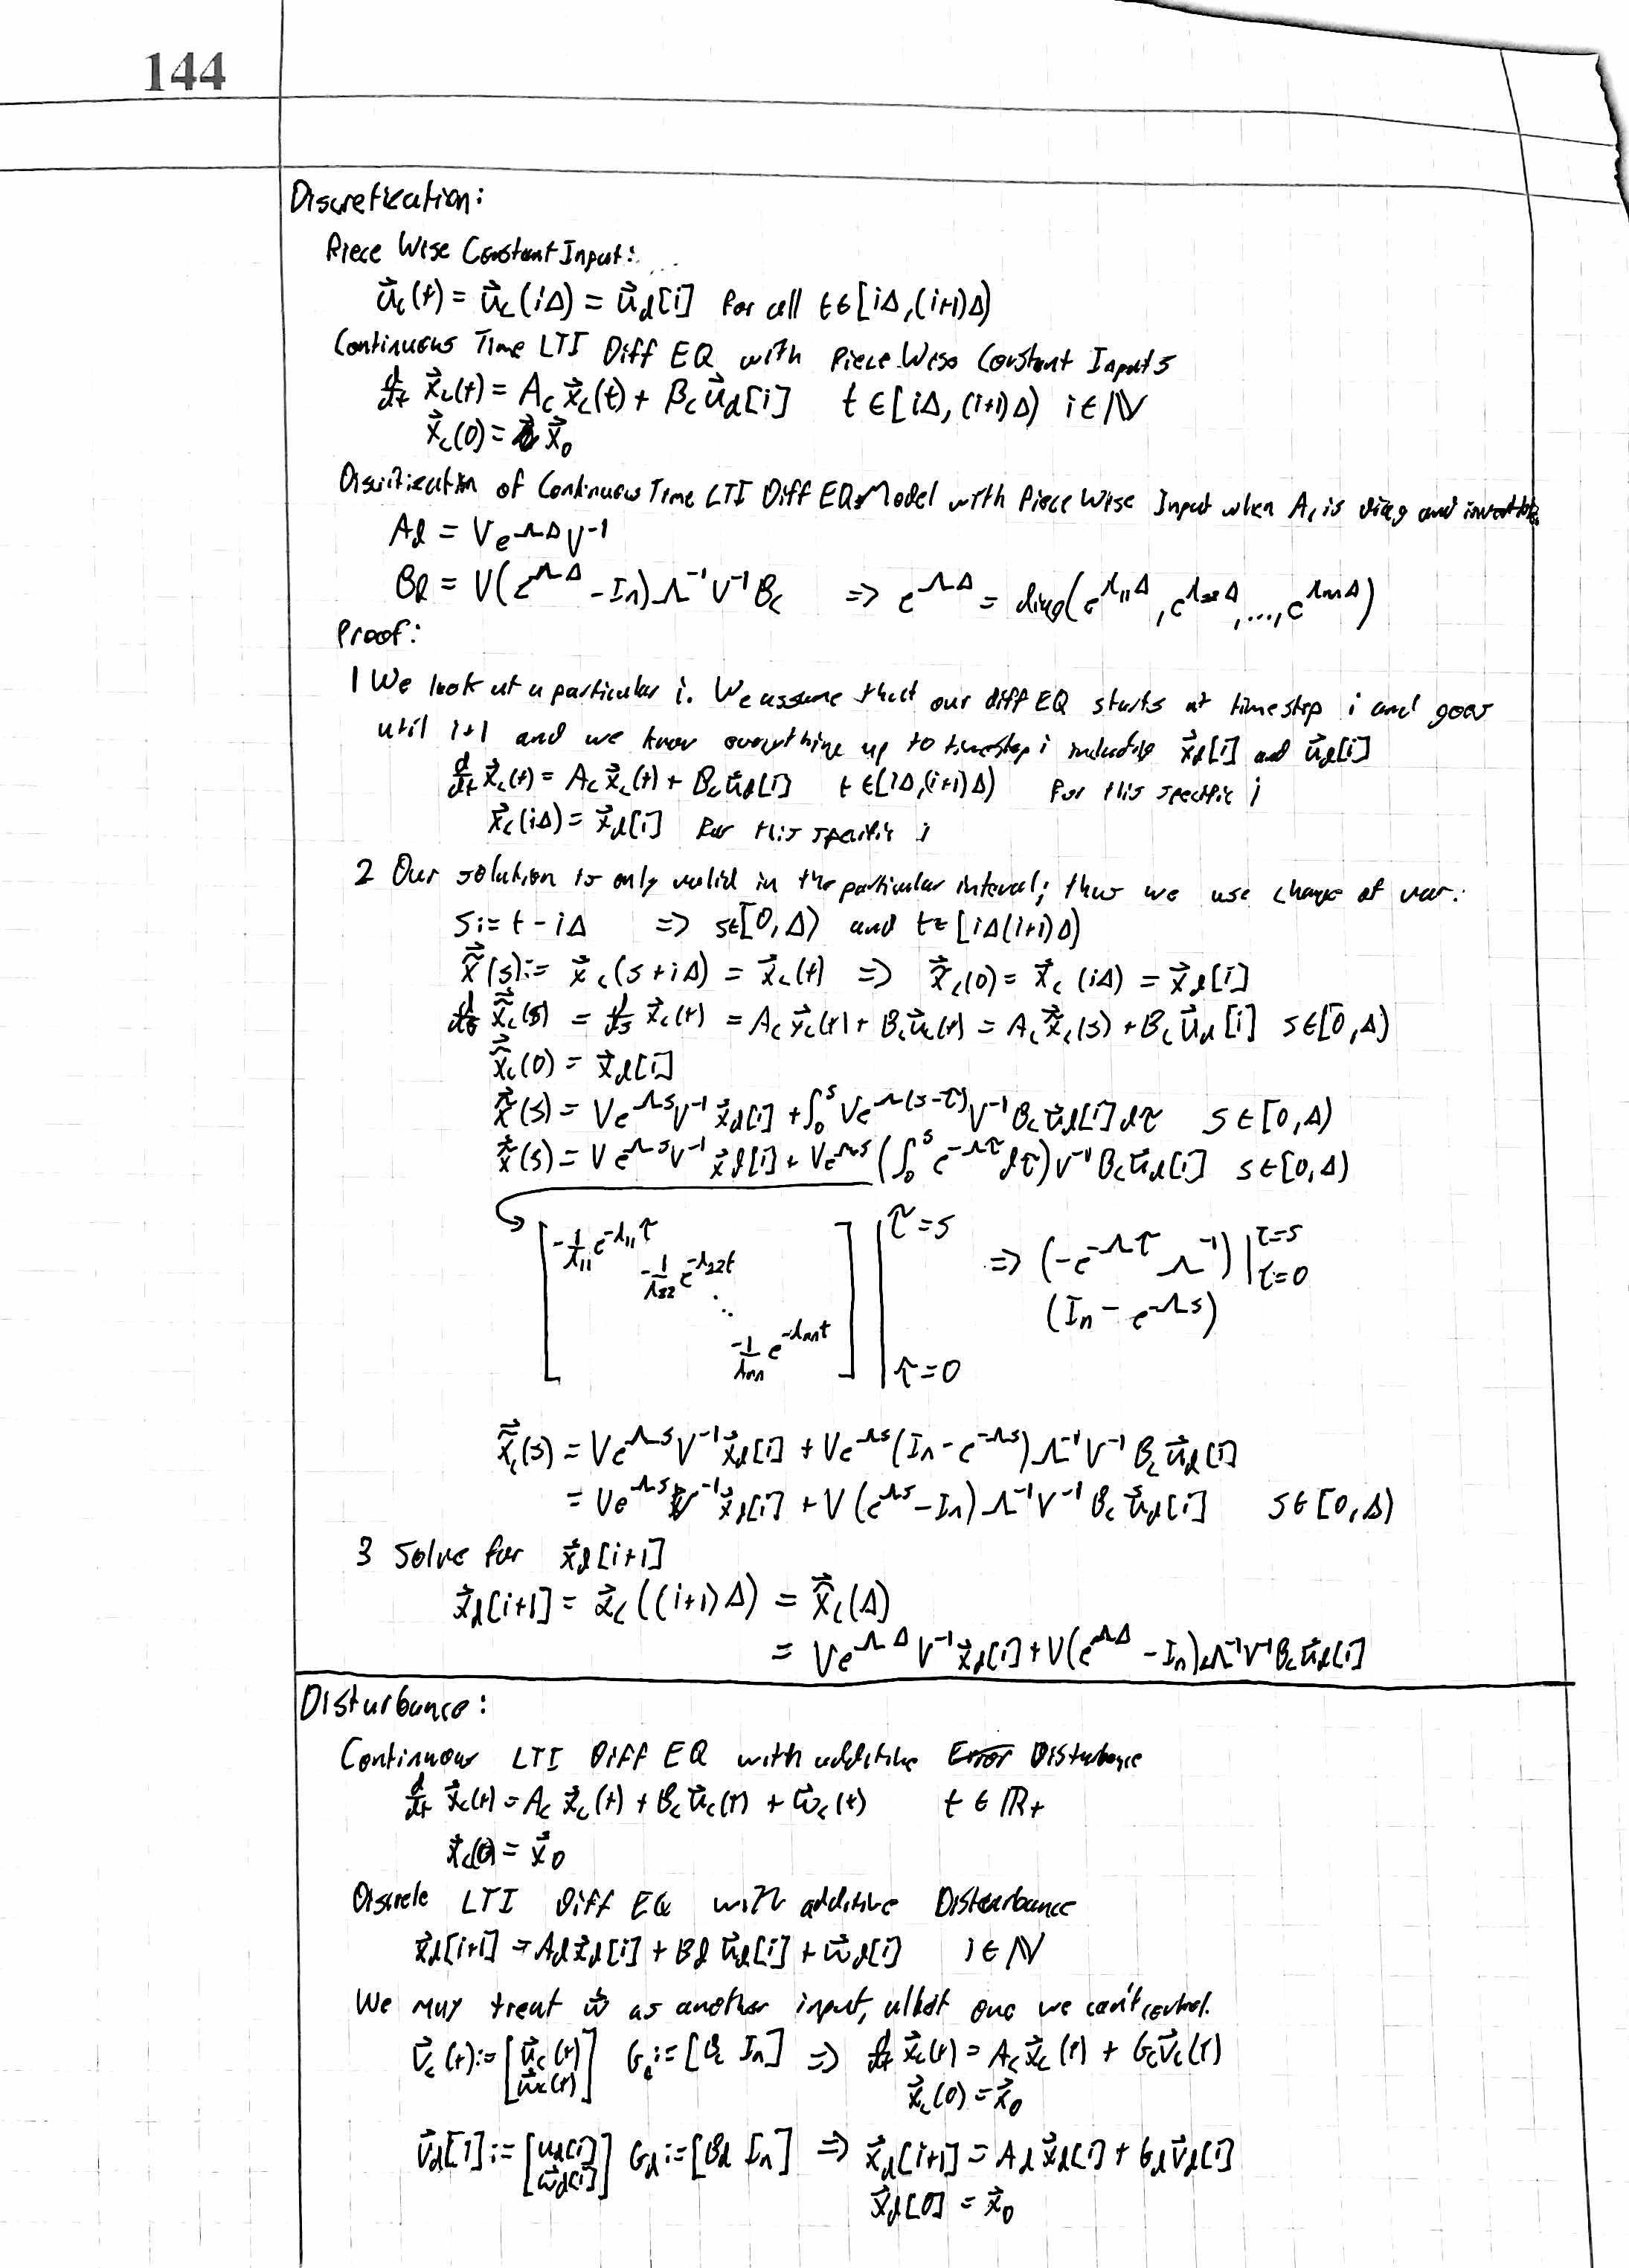 144
Discretization:
Piece Wise Constant Input:
u⃗_c(t) = u⃗_c(iΔ) = u⃗_d[i] for all t∈[iΔ,(i+1)Δ)
Continuous Time LTI Diff EQ with Piece Wise Constant Inputs
d/dt x⃗_c(t) = A_c x⃗_c(t) + B_c u⃗_d[i] t∈[iΔ, (i+1)Δ) i∈ℕ
x⃗_c(0) = x⃗_0
of Continuous Time LTI Diff EQ Model with Piece Wise Input when A_c is diag and
A_d = Ve^{ΛΔ}V^{-1}
B_d = V(e^{ΛΔ} - I_n)Λ^{-1}V^{-1}B_c => e^{ΛΔ} = diag(e^{λ_11Δ}, e^{λ_22Δ},..., e^{λ_nnΔ})
Proof:
1 We look at a particular i. We assume that our diff EQ starts at timestep i and goes
until i+1 and we know everything up to timestep i including x⃗_d[i] and u⃗_d[i]
d/dt x⃗_c(t) = A_c x⃗_c(t) + B_c u⃗_d[i] t∈[iΔ,(i+1)Δ) for this specific i
x⃗_c(iΔ) = x⃗_d[i] for this specific i
2 Our solution is only valid in the particular interval; thus we use change of var:
s:= t - iΔ => s∈[0,Δ) and t∈[iΔ(i+1)Δ)
x̃⃗(s):= x⃗_c(s+iΔ) = x⃗_c(t) => x̃⃗_c(0) = x⃗_c(iΔ) = x⃗_d[i]
d/ds x̃⃗_c(s) = d/ds x⃗_c(t) = A_c x⃗_c(t) + B_c u⃗_c(t) = A_c x̃⃗_c(s) + B_c u⃗_d[i] s∈[0,Δ)
x̃⃗_c(0) = x⃗_d[i]
x̃⃗(s) = Ve^{Λs}V^{-1} x⃗_d[i] + ∫_0^s Ve^{Λ(s-τ)}V^{-1}B_c u⃗_d[i]dτ s∈[0,Δ)
x̃⃗(s) = Ve^{Λs}V^{-1} x⃗_d[i] + Ve^{Λs}(∫_0^s e^{-Λτ}dτ)V^{-1}B_c u⃗_d[i] s∈[0,Δ)
[-1/λ_11 e^{-λ_11τ} -1/λ_22 e^{-λ_22t} ⋱ -1/λ_nn e^{-λ_nnt}] |_{τ=0}^{τ=s} => (-e^{-Λτ}Λ^{-1})|_{τ=0}^{τ=s}
(I_n - e^{-Λs})
x̃⃗_c(s) = Ve^{Λs}V^{-1}x⃗_d[i] + Ve^{Λs}(I_n - e^{-Λs})Λ^{-1}V^{-1}B_c u⃗_d[i]
= Ve^{Λs}V^{-1}x⃗_d[i] + V(e^{Λs} - I_n)Λ^{-1}V^{-1}B_c u⃗_d[i] s∈[0,Δ)
3 Solve for x⃗_d[i+1]
x⃗_d[i+1] = x⃗_c((i+1)Δ) = x̃⃗_c(Δ)
= Ve^{ΛΔ}V^{-1}x⃗_d[i] + V(e^{ΛΔ} - I_n)Λ^{-1}V^{-1}B_c u⃗_d[i]
Disturbance:
Continuous LTI Diff EQ with additive Error Disturbance
d/dt x⃗_c(t) = A_c x⃗_c(t) + B_c u⃗_c(t) + w⃗_c(t) t∈ℝ+
x⃗_c(0) = x⃗_0
Discrete LTI Diff EQ with additive Disturbance
x⃗_d[i+1] = A_d x⃗_d[i] + B_d u⃗_d[i] + w⃗_d[i] i∈ℕ
We may treat w⃗ as another input, albeit one we can't control.
v⃗_c(t):= [u⃗_c(t) w⃗_c(t)] G_c:= [B_c I_n] => d/dt x⃗_c(t) = A_c x⃗_c(t) + G_c v⃗_c(t)
x⃗_c(0) = x⃗_0
v⃗_d[i]:= [u_d[i] w⃗_d[i]] G_d:= [B_d I_n] => x⃗_d[i+1] = A_d x⃗_d[i] + G_d v⃗_d[i]
x⃗_d[0] = x⃗_0